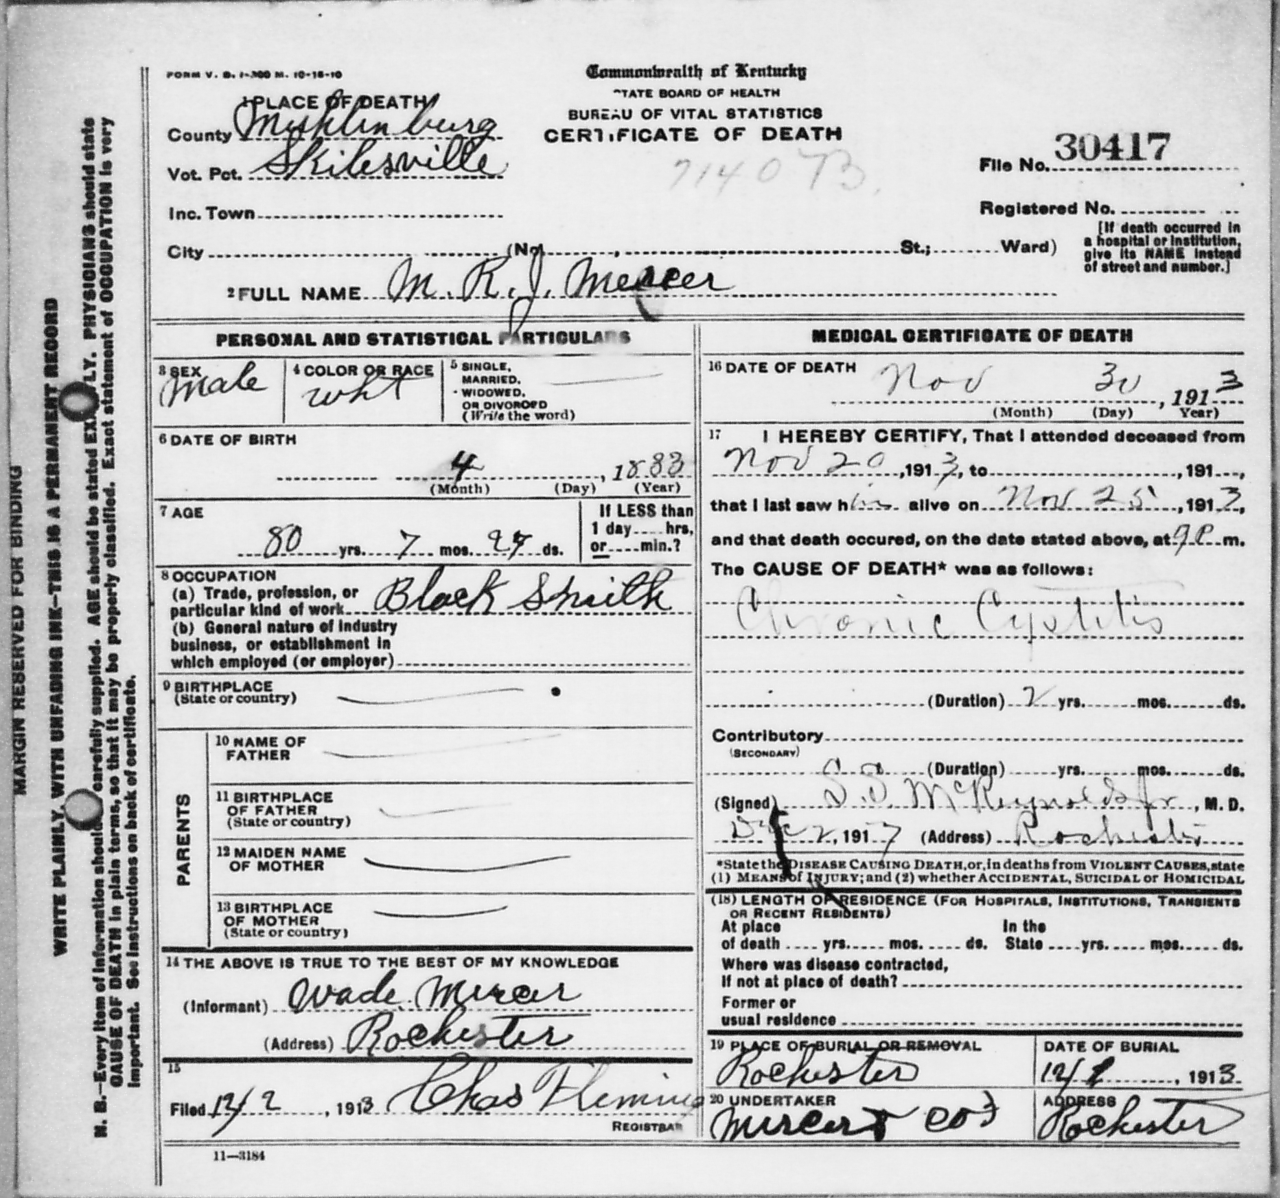 FORM V. S. 1-300 M. 10-16-10
Commonwealth of Kentucky
STATE BOARD OF HEALTH
BUREAU OF VITAL STATISTICS
CERTIFICATE OF DEATH
1 PLACE OF DEATH
County Muhlinburg
Vot. Pct. Skilesville
Inc. Town
City (No. , St.; Ward)
714073.
File No. 30417
Registered No.
[If death occurred in
a hospital or institution,
give its NAME instead
of street and number.]
2 FULL NAME M. R. J. Mercer
PERSONAL AND STATISTICAL PARTICULARS
3 SEX
Male
4 COLOR OR RACE
wht
5 SINGLE,
MARRIED,
WIDOWED,
OR DIVORCED
(Write the word)
6 DATE OF BIRTH
4 , 1833
(Month) (Day) (Year)
7 AGE
80 yrs. 7 mos. 27 ds.
If LESS than
1 day hrs,
or min.?
8 OCCUPATION
(a) Trade, profession, or
particular kind of work Black Smith
(b) General nature of industry
business, or establishment in
which employed (or employer)
9 BIRTHPLACE
(State or country)
PARENTS
10 NAME OF
FATHER
11 BIRTHPLACE
OF FATHER
(State or country)
12 MAIDEN NAME
OF MOTHER
13 BIRTHPLACE
OF MOTHER
(State or country)
14 THE ABOVE IS TRUE TO THE BEST OF MY KNOWLEDGE
(Informant) Wade Mercer
(Address) Rochester
15
Filed 12/2 , 1913 Chas Fleming
REGISTRAR
11—3184
MEDICAL CERTIFICATE OF DEATH
16 DATE OF DEATH
Nov 30 , 1913
(Month) (Day) Year)
17 I HEREBY CERTIFY, That I attended deceased from
Nov 20 , 1913, to , 191 ,
that I last saw him alive on Nov 25 , 1913,
and that death occured, on the date stated above, at 9P m.
The CAUSE OF DEATH* was as follows:
Chronic Cystitis
(Duration) 2 yrs. mos. ds.
Contributory
(SECONDARY)
(Duration) yrs. mos. ds.
(Signed) McReynolds Jr , M. D.
Dec 2, 191 (Address) Rochester
*State the DISEASE CAUSING DEATH, or, in deaths from VIOLENT CAUSES, state
(1) MEANS of INJURY; and (2) whether ACCIDENTAL, SUICIDAL or HOMICIDAL
(18) LENGTH OF RESIDENCE (FOR HOSPITALS, INSTITUTIONS, TRANSIENTS
OR RECENT RESIDENTS)
At place In the
of death yrs. mos. ds. State yrs. mos. ds.
Where was disease contracted,
If not at place of death?
Former or
usual residence
19 PLACE OF BURIAL OR REMOVAL
Rochester
DATE OF BURIAL
12/1 , 1913
20 UNDERTAKER
Mercer & Co
ADDRESS
Rochester
MARGIN RESERVED FOR BINDING
WRITE PLAINLY, WITH UNFADING INK—THIS IS A PERMANENT RECORD
N. B.—Every item of information should carefully supplied. AGE should be stated EXACTLY. PHYSICIANS should state
CAUSE OF DEATH in plain terms, so that it may be properly classified. Exact statement of OCCUPATION is very
important. See instructions on back of certificate.